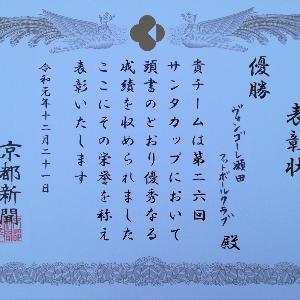 表彰状
優勝
ヴォンゾーレ瀬田
フットボールクラブ 殿
貴チームは第二六回
サンタカップにおいて
頭書のとおり優秀なる
成績を収められました
ここにその栄誉を称え
表彰いたします
令和元年十二月二十一日
京都新聞